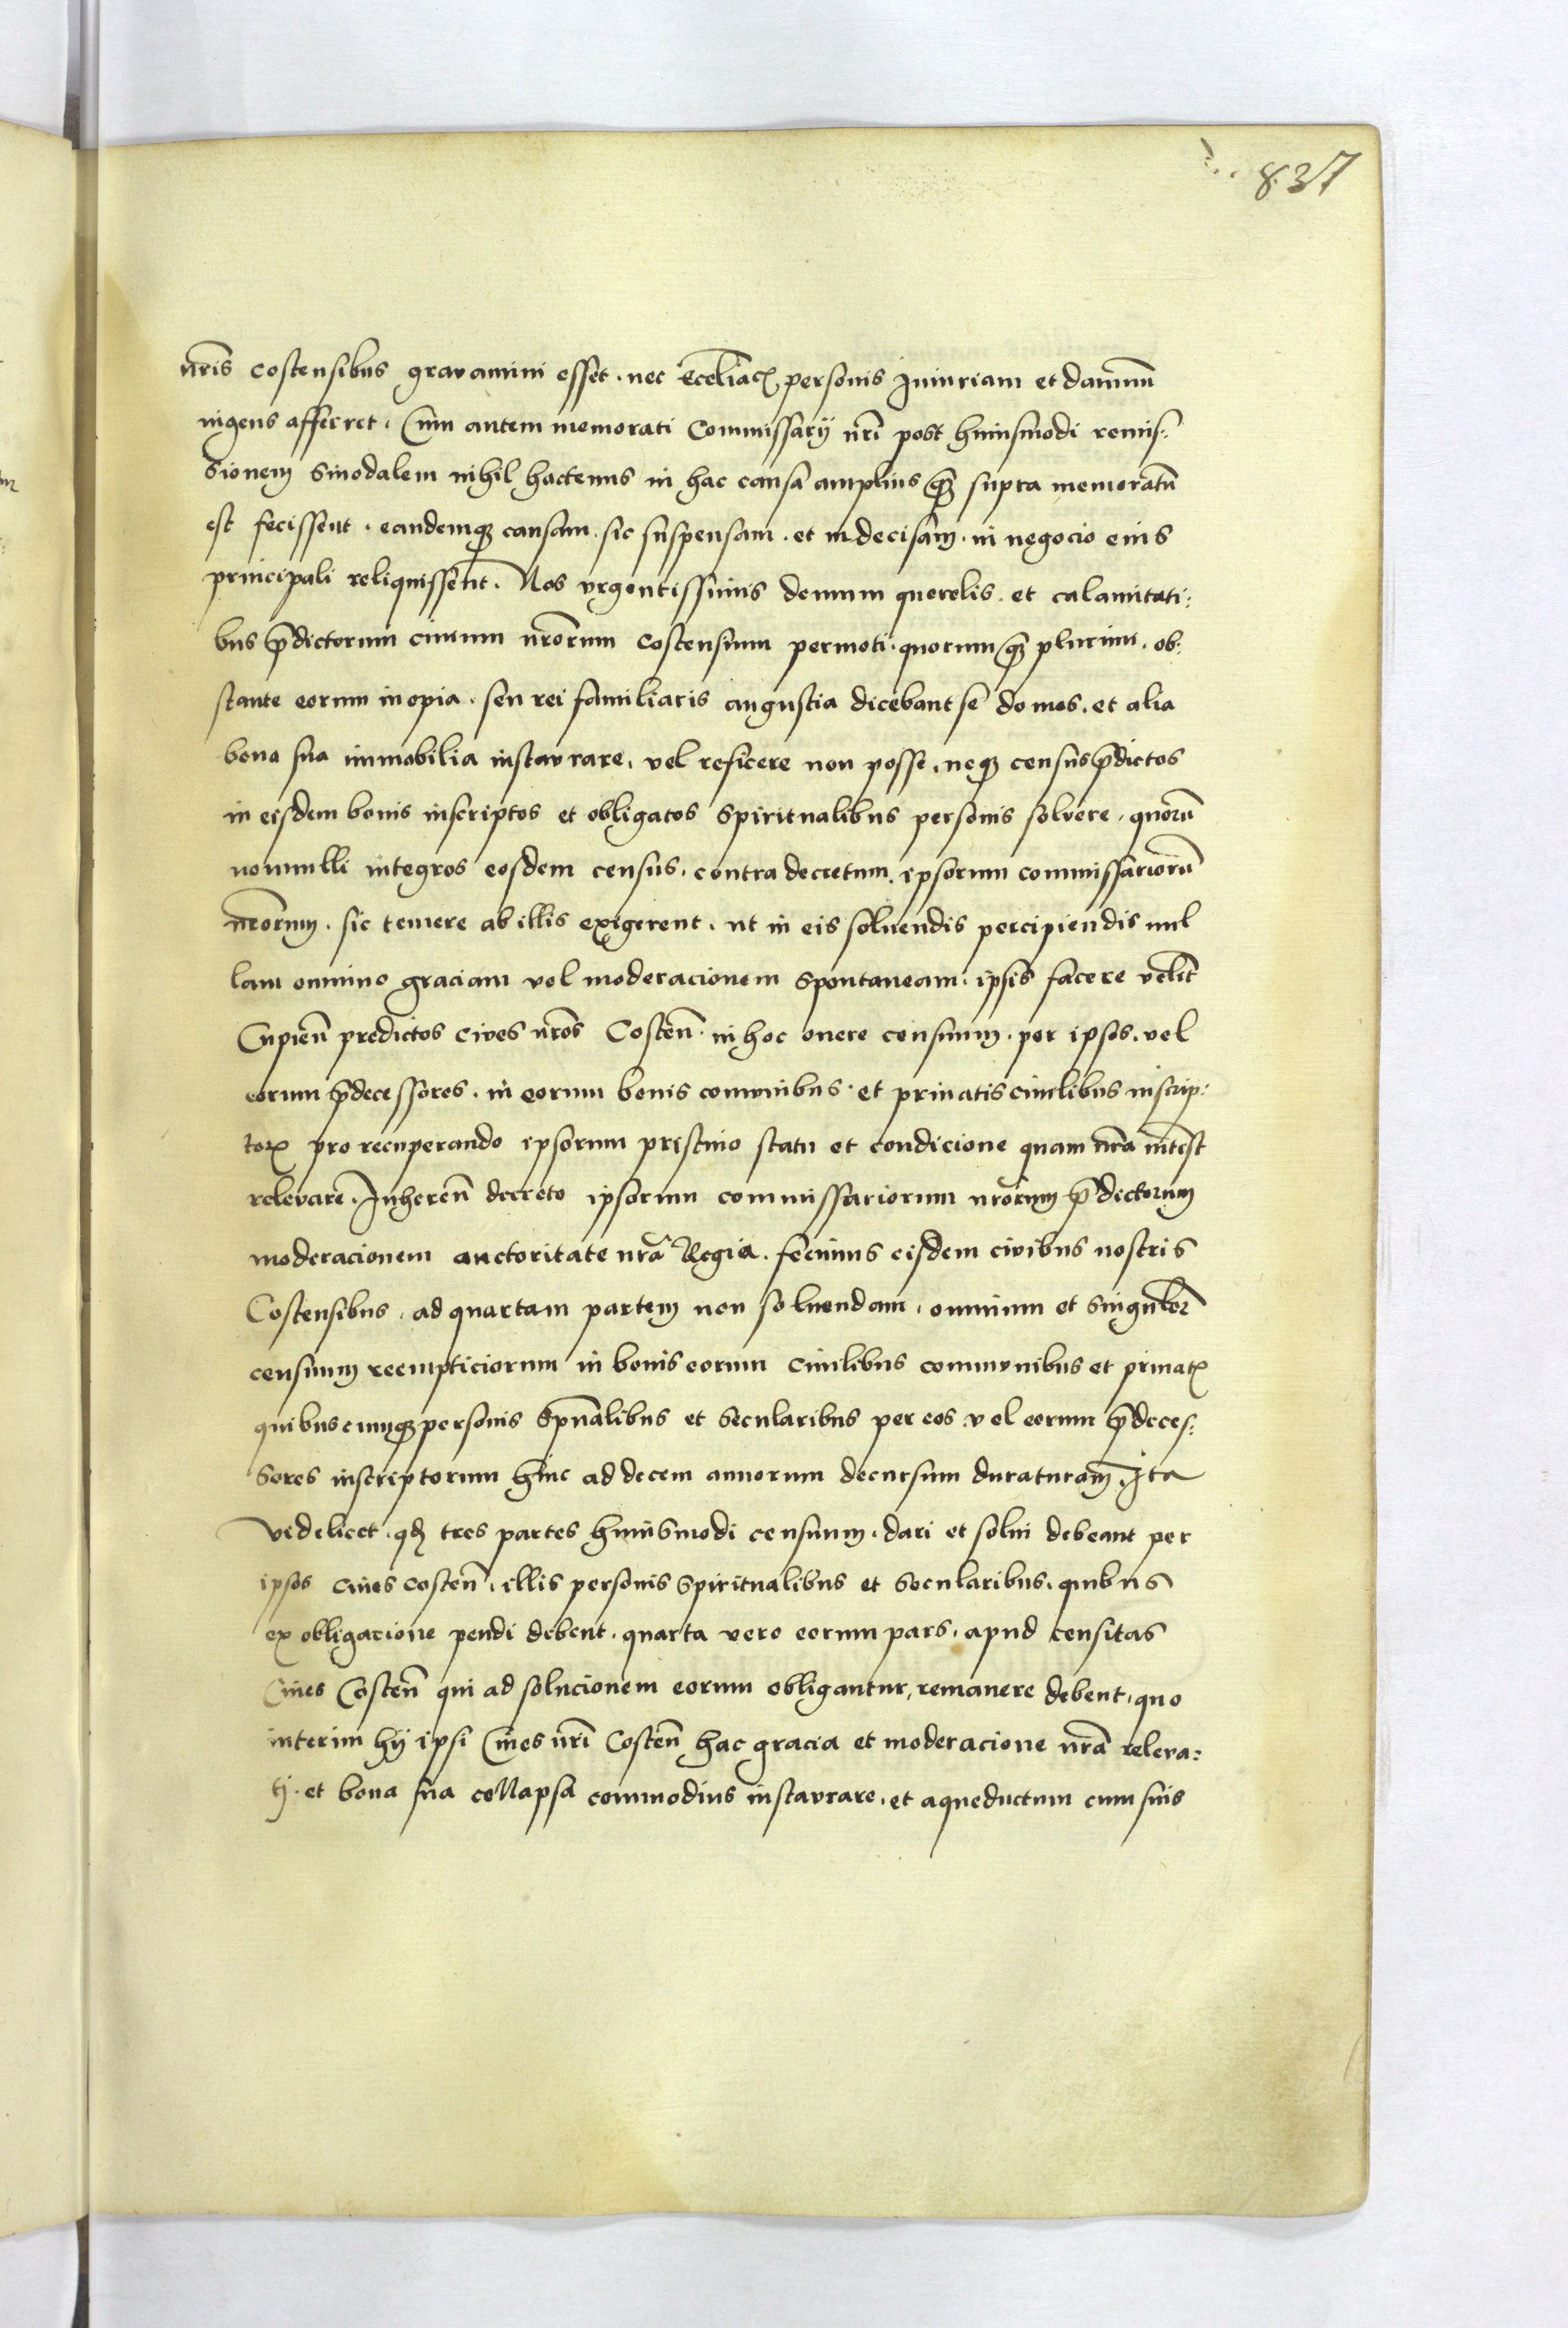 837
nr̃is costensibus gravamini esset. nec Eccl̃iaꝶ personis Iniuriam et damnũ
ingens afferret. Cum autem memorati Commissarij nr̃i post huiusmodi remis-
sionem Sinodalem nihil hactenus in hac causa amplius qȝ supra memoratũ
est fecissent. eandemqȝ causam sic suspensam. et indecisam. in negocio eius
principali reliquissent. Nos vrgentissimis demum querelis. et calamitati:
bus p̃dictorum ciuium nr̃orum costensium permoti. quorum qȝ plurimi. ob:
stante eorum inopia. seu rei familiaris angustia dicebant se domos. et alia
bona sua immobilia instavrare. vel reficere non posse. neqȝ census p̃dictos
in eisdem bonis inscriptos et obligatos Spiritualibus personis solvere. quorũ
nonnulli integros eosdem census. contra decretum. ipsorum commissariorũ
nr̃orum. sic temere ab illis exigerent. ut in eis soluendis percipiendis nul
lam omnino graciam vel moderacionem Spontaneam. ipsis facere velĩt
Cupieñ predictos cives nr̃os Costeñ. in hoc onere censuum. per ipsos. vel
eorum p̃decessores. in eorum bonis comvnibus. et priuatis ciuilibus inscrip:
toꝶ pro recuperando ipsorum pristino statu et condicione quam nr̃a intẽst
relevare. Inhereñ decreto ipsorum commissariorum nr̃orum p̃dictorum
moderacionem auctoritate nr̃a Regia. fecimus eisdem civibus nostris
Costensibus. ad quartam partem non soluendam. omnium et singuloꝶ
censuum reempticiorum in bonis eorum ciuilibus commvnibus et priuatꝭ
quibuscumqȝ personis Spũalibus et Secularibus per eos vel eorum p̃deces:
sores inscriptorum hinc ad decem annorum decursum duraturam. Ita
videlicet. qđ tres partes huiusmodi censuum. dari et solui debeant per
ipsos ciues costeñ. illis personis Spiritualibus et Secularibus. quibus
ex obligacione pendi debent. quarta vero eorum pars. apud censitas
Ciues Costeñ qui ad solucionem eorum obligantur, remanere debent. quo
interim hij ipsi Ciues nr̃i Costeñ hac gracia et moderacione nr̃a releva:
tj. et bona sua collapsa commodius instavrare. et aqueductum cum suis